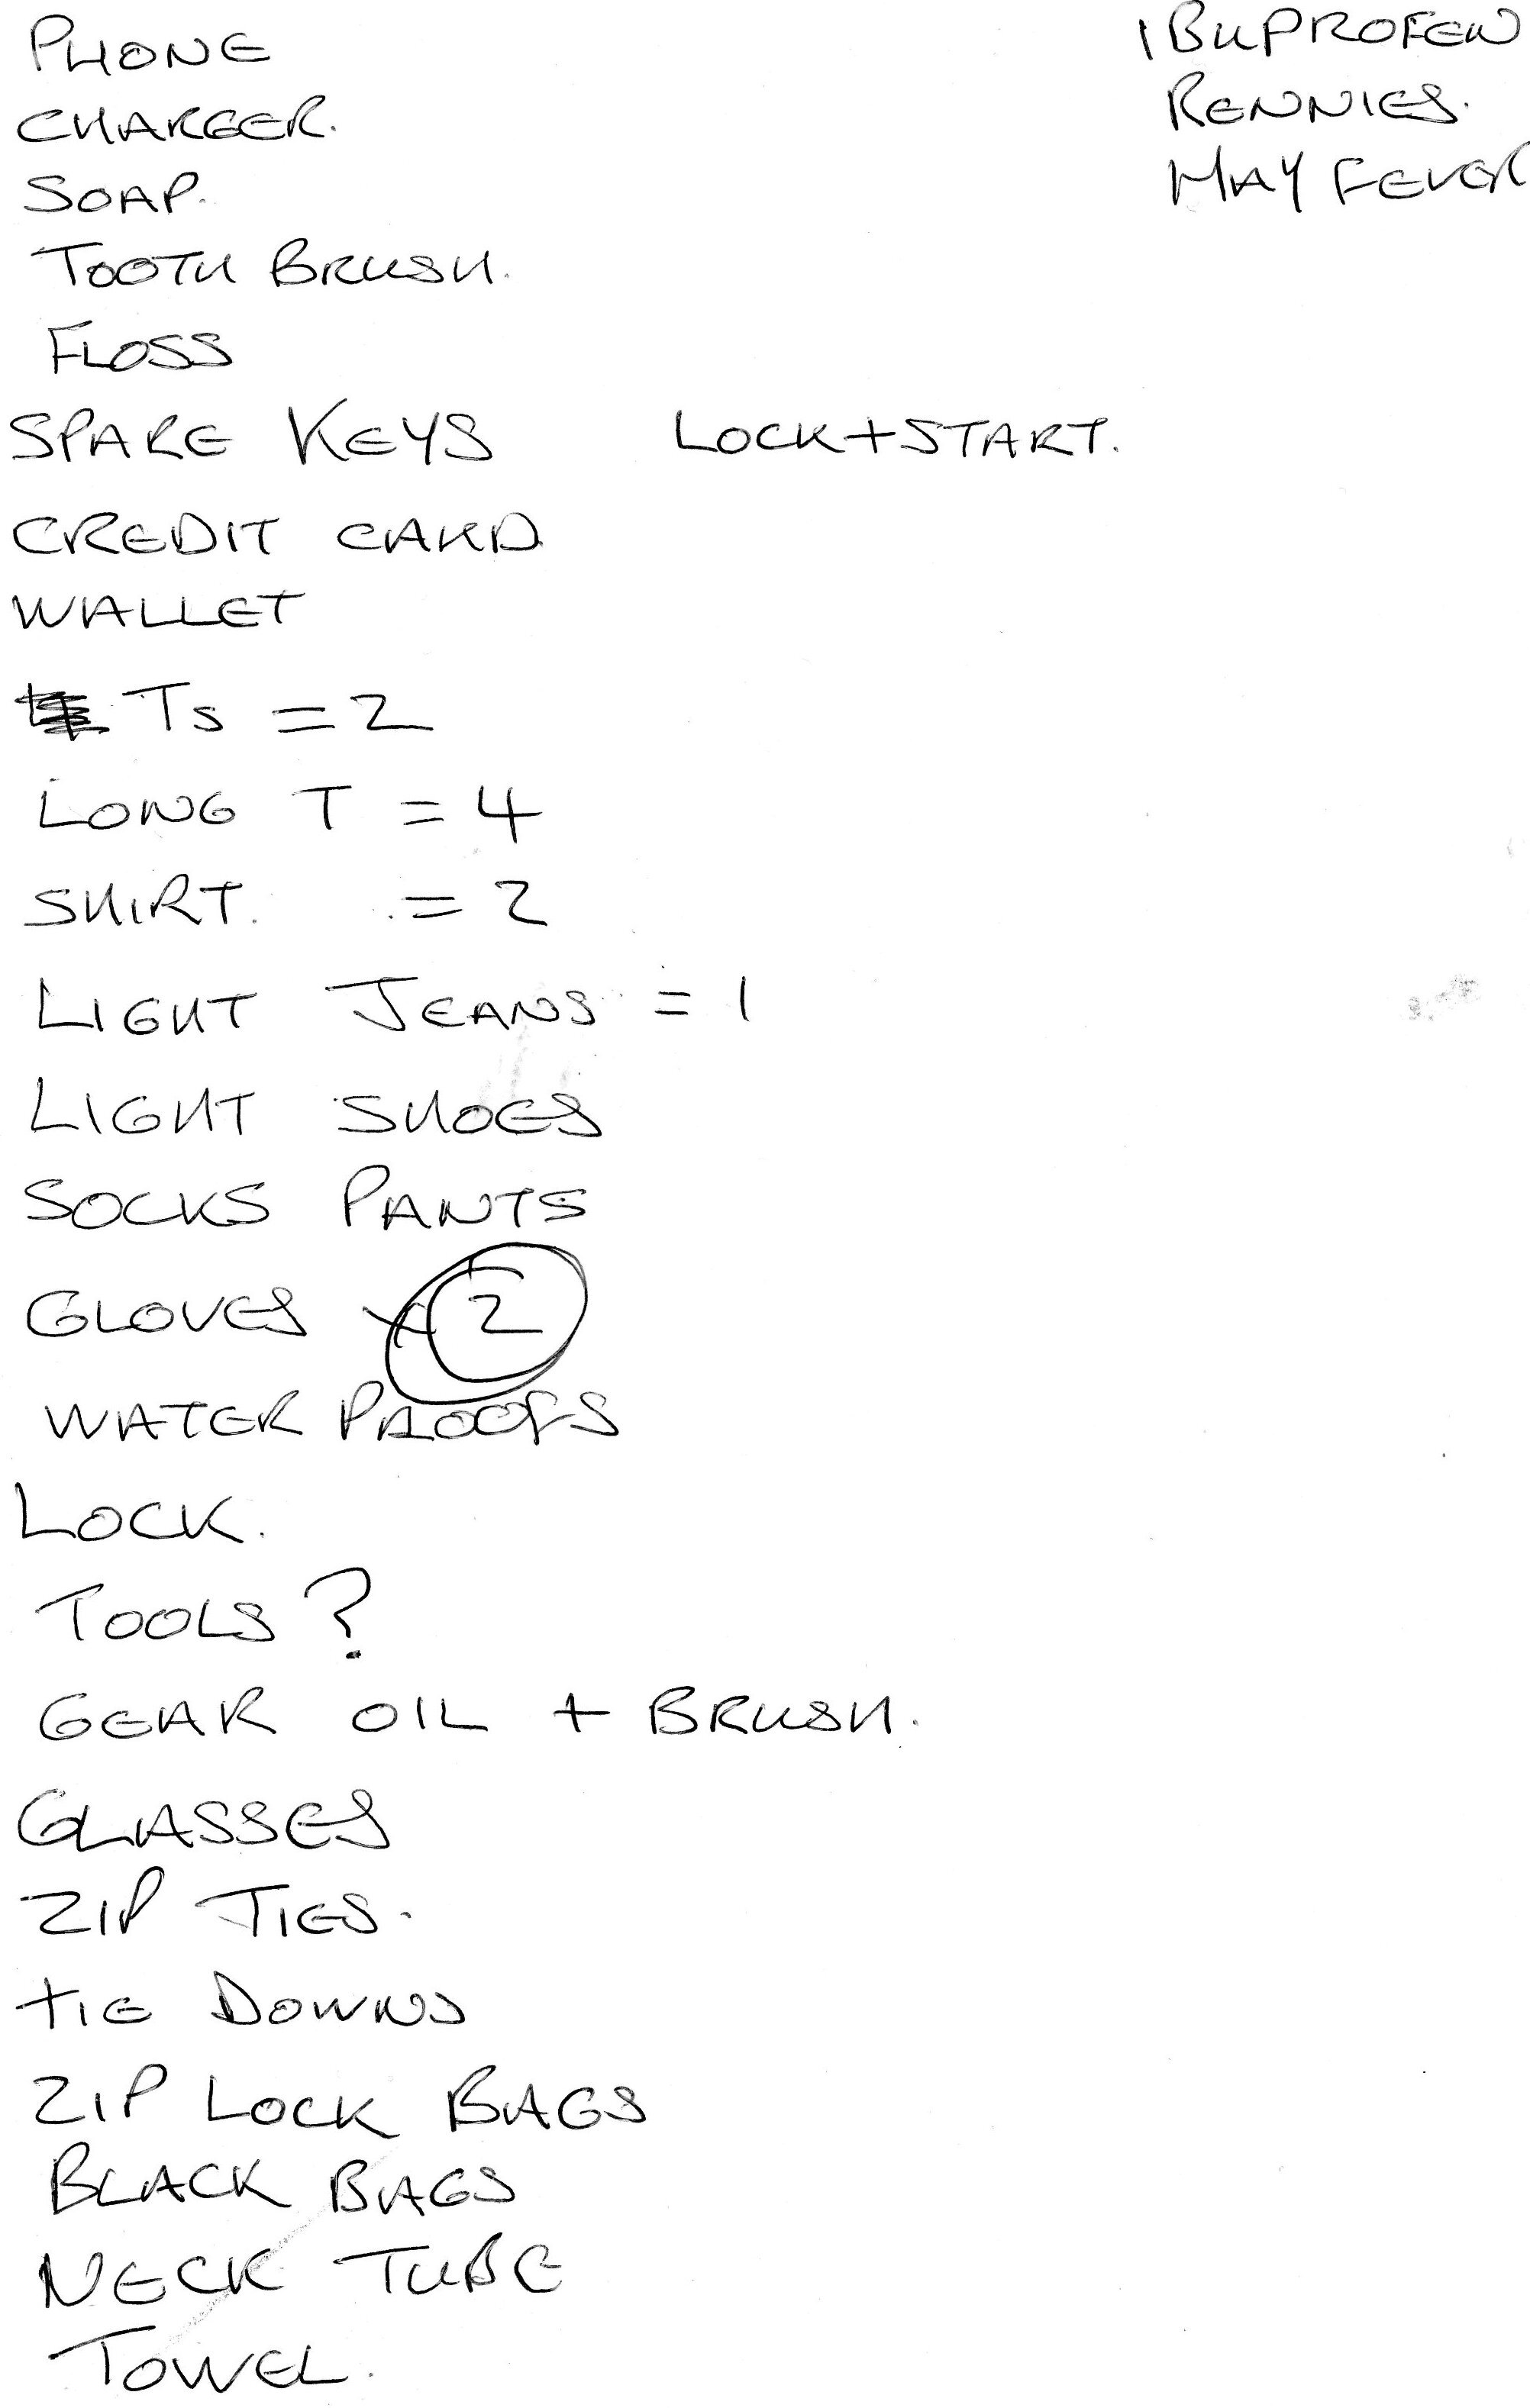 PHONE
CHARGER.
SOAP.
TOOTH BRUSH.
FLOSS
SPARE KEYS LOCK+START.
CREDIT CARD
WALLET
Ts = 2
LONG T = 4
SHIRT. = 2
LIGHT JEANS = 1
LIGHT SHOES
SOCKS PANTS
GLOVES x 2
WATER PROOFS
LOCK.
TOOLS ?
GEAR OIL + BRUSH.
GLASSES
ZIP TIES.
TIE DOWNS
ZIP LOCK BAGS
BLACK BAGS
NECK TUBE
TOWEL.
IBUPROFEN
RENNIES.
HAY FEVER